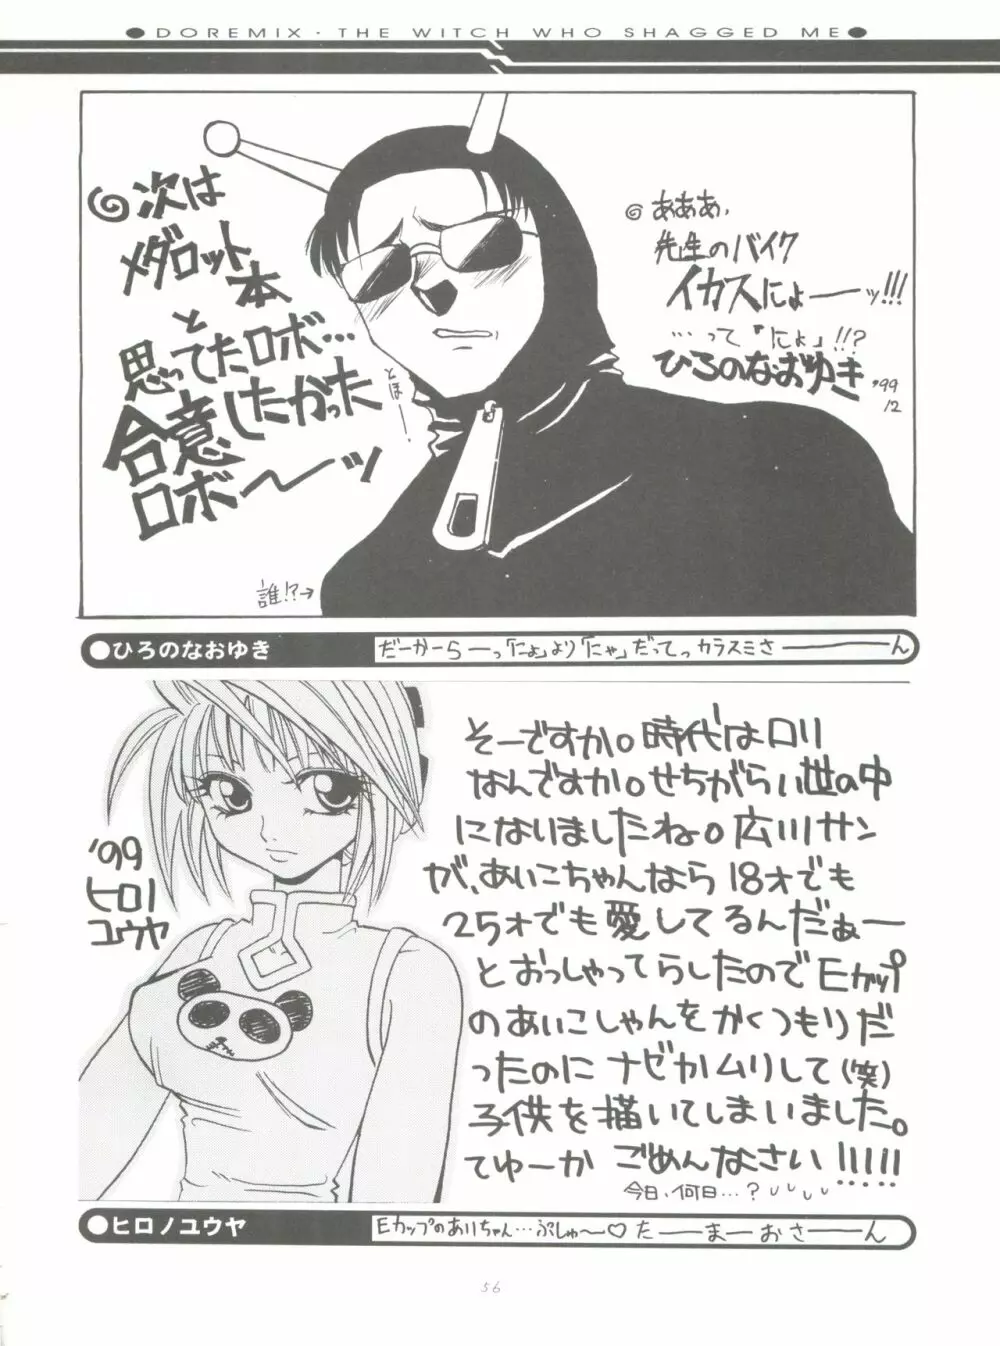 ●DOREMIX・THE WITCH WHO SHAGGED ME●
次は
メダロット
本
と
思ってたロボ…
合意したかった
ロボ〜ーッ
あああ、
先生のバイク
イカスにょーーッ!!!
…って「にょ」!!?
ひろのなおゆき
'99
12
とほー…!
誰!?→
●ひろのなおゆき
だーかーらーっ「にょ」より「にゃ」だってっカラスミさーーーん
そーですか。時代はロリ
なんですか。せちがらい世の中
になりましたね。広川サン
が、あいこちゃんなら18才でも
25才でも愛してるんだぁー
とおっしゃってらしたのでEカップ
のあいこしゃんをかくつもりだ
ったのにナゼかムリして(笑)
子供を描いてしまいました。
てゆーか ごめんなさい!!!!!
今日、何日…?
'99
ヒロノ
ユウヤ
●ヒロノユウヤ
Eカップのあいちゃん…ぷしゅ〜♡たーーまーおさーーん
56